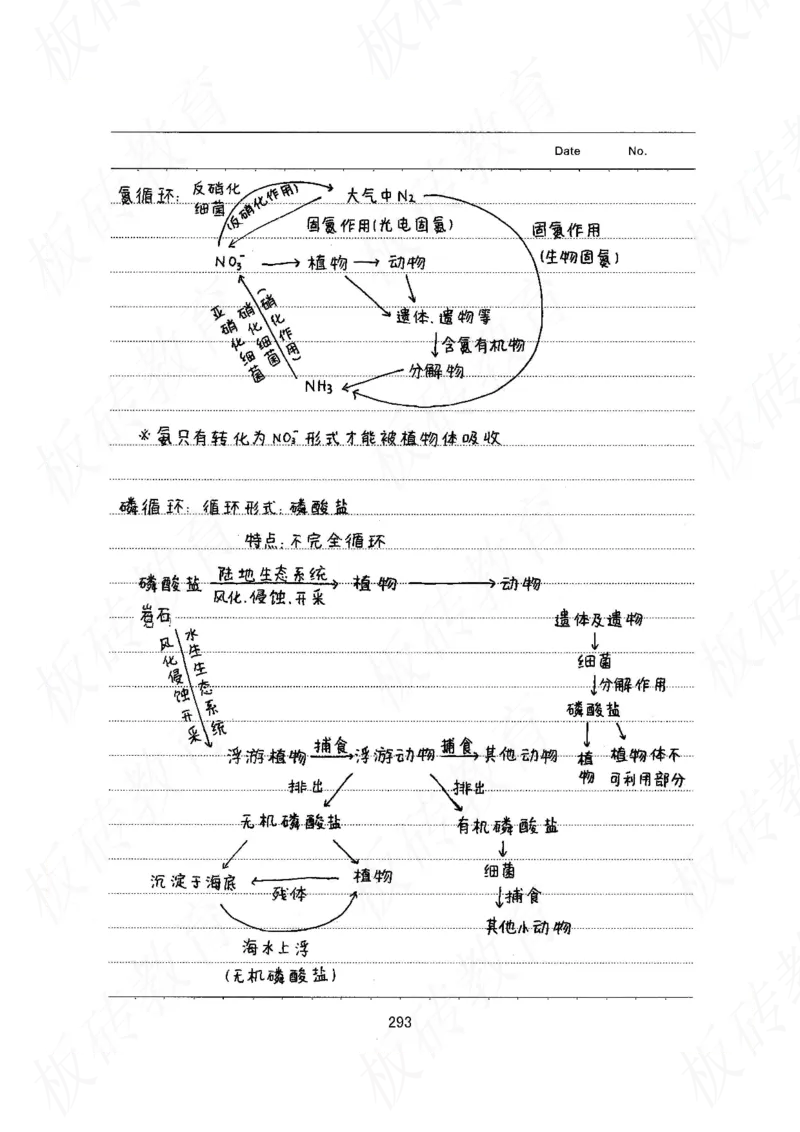 Date No.
氮循环: 反硝化细菌
(反硝化作用)
大气中N₂
固氮作用(光电固氮)
固氮作用
(生物固氮)
NO₃⁻ → 植物 → 动物
亚硝化细菌
硝化细菌
(硝化作用)
遗体、遗物等
↓含氮有机物
分解物
NH₃
※氮只有转化为NO₃⁻形式才能被植物体吸收
磷循环: 循环形式: 磷酸盐
特点: 不完全循环
磷酸盐 陆地生态系统 → 植物 → 动物
风化、侵蚀、开采
岩石
水生生态系统
风化侵蚀开采
遗体及遗物
↓
细菌
↓分解作用
磷酸盐
植物
植物体不可利用部分
浮游植物 捕食→ 浮游动物 捕食→ 其他动物
排出 排出
无机磷酸盐 有机磷酸盐
沉淀于海底 ← 残体 植物
细菌
↓捕食
其他小动物
海水上浮
(无机磷酸盐)
293
板砖教育